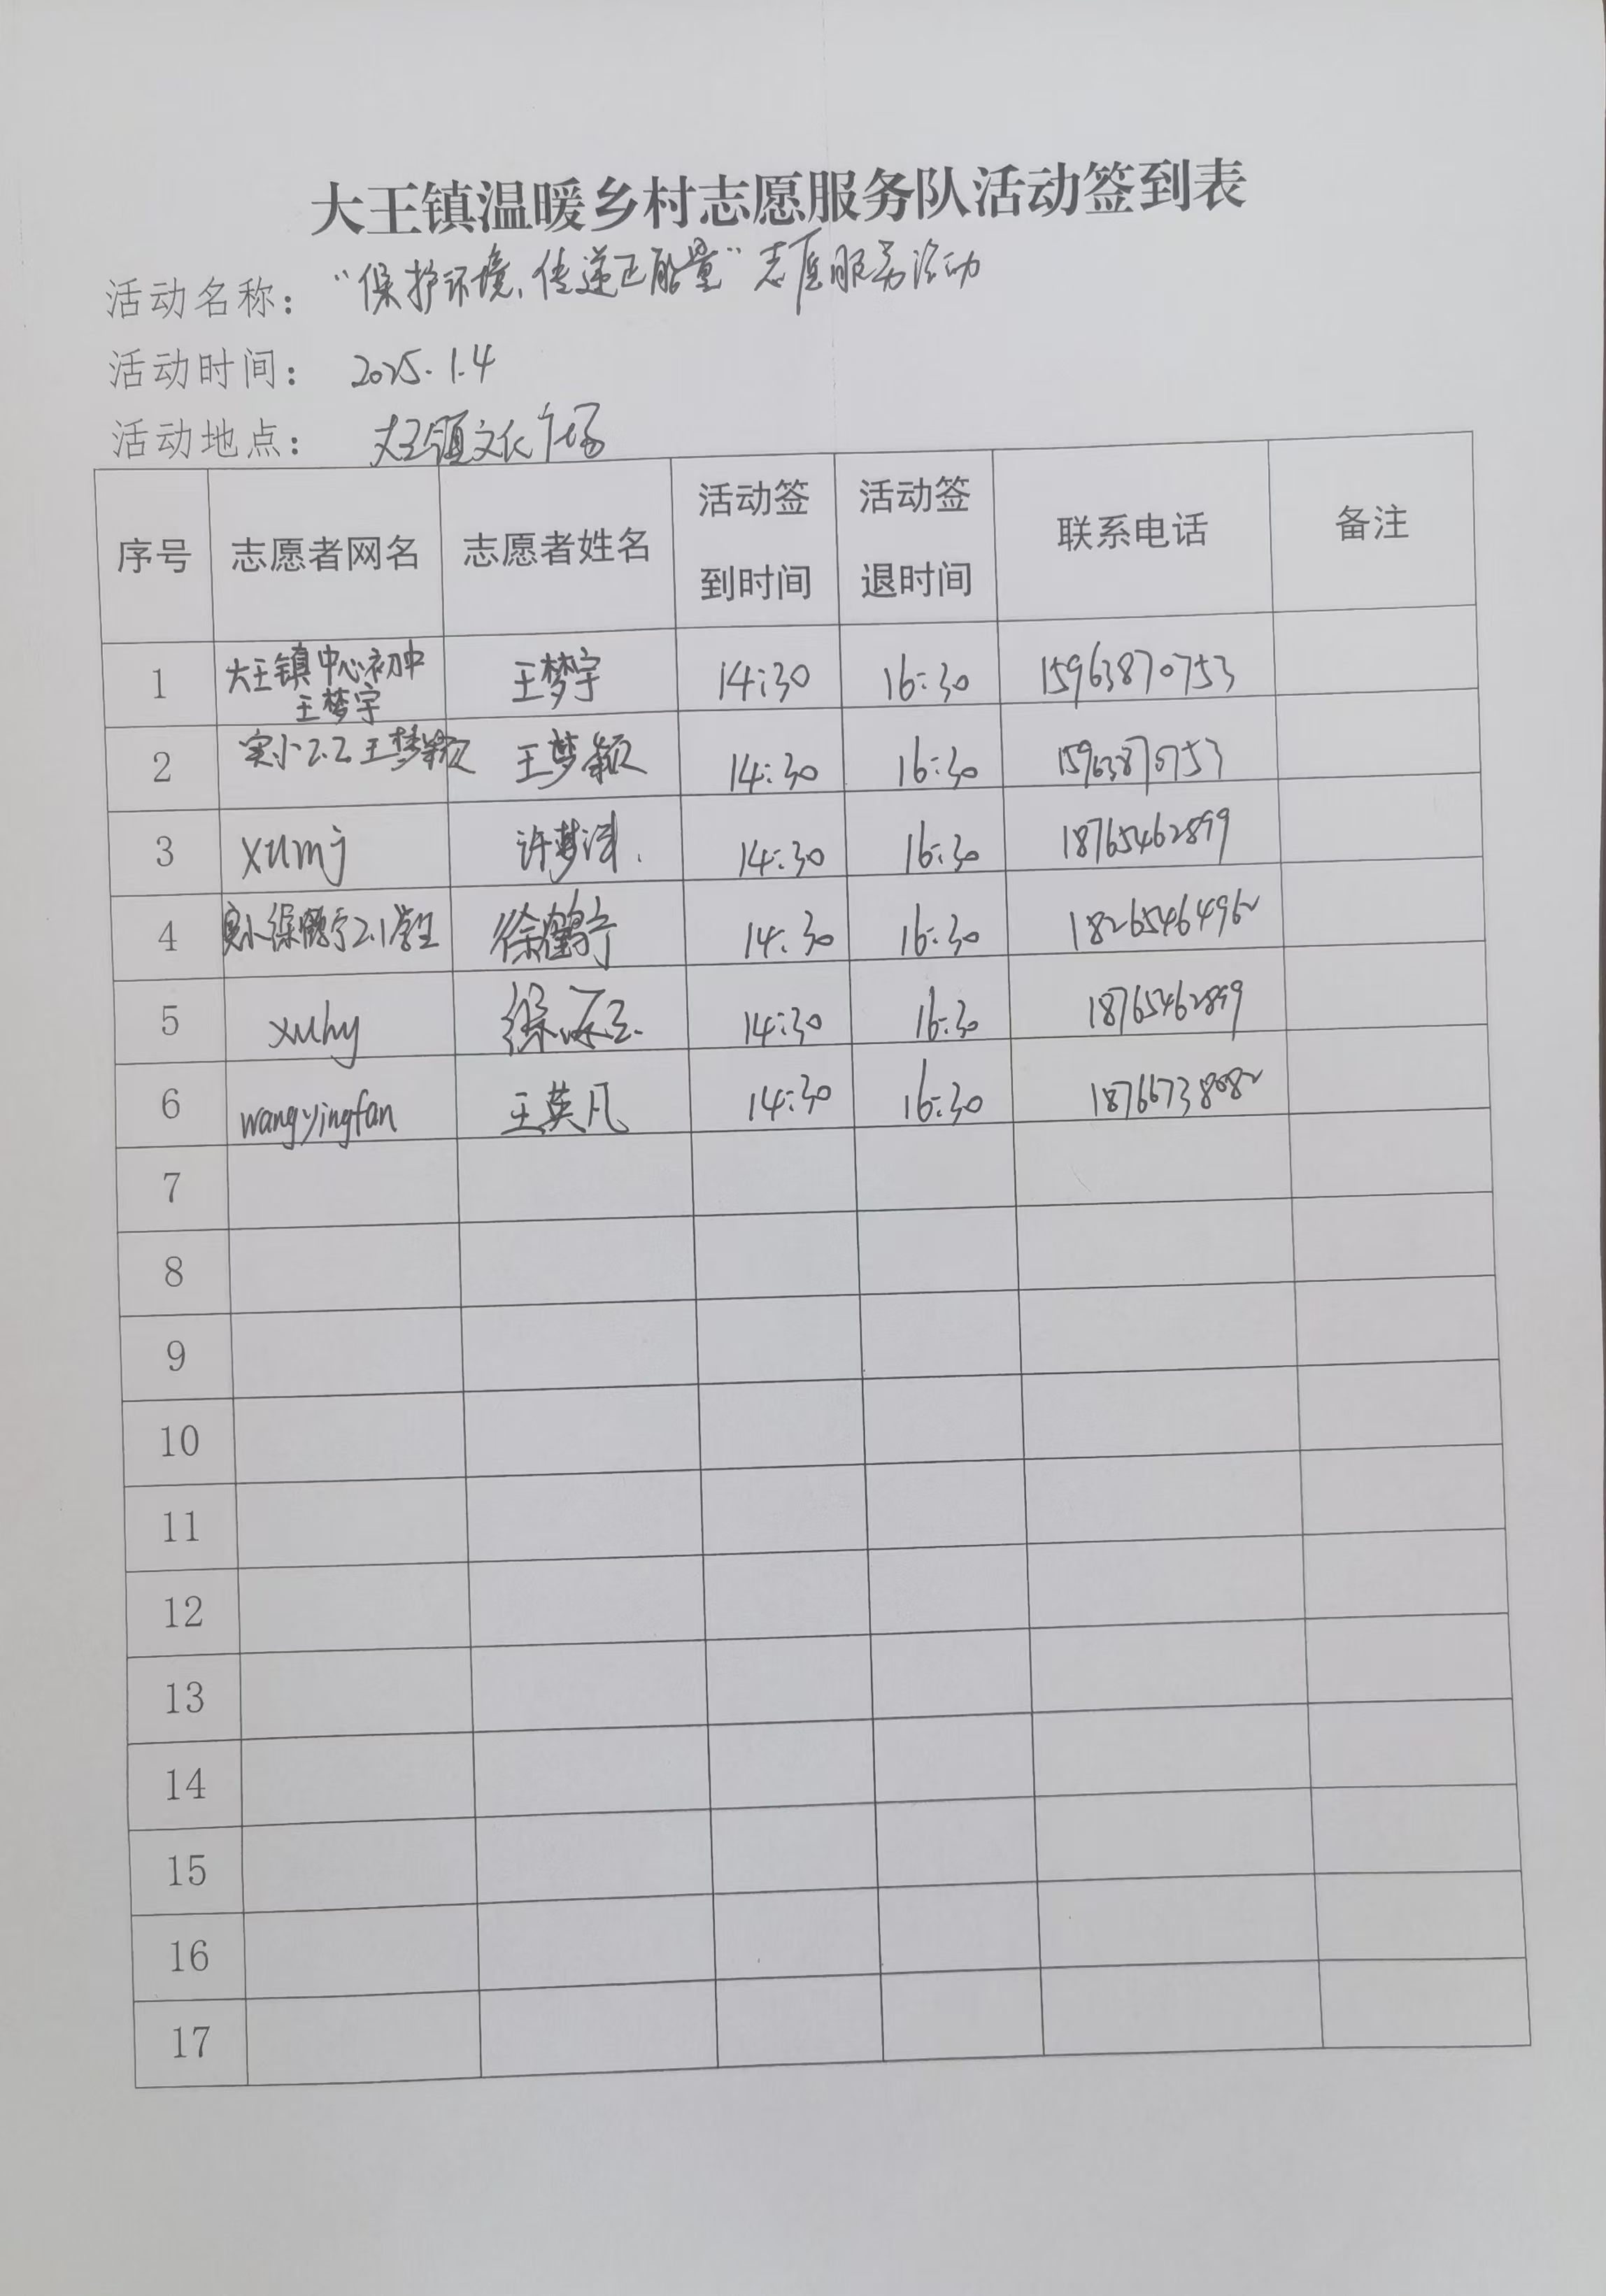 大王镇温暖乡村志愿服务队活动签到表
活动名称： “保护环境,传递正能量”志愿服务活动
活动时间： 2025.1.4
活动地点： 大王镇文化广场
序号 志愿者网名 志愿者姓名 活动签到时间 活动签退时间 联系电话 备注
1 大王镇中心初中王梦宇 王梦宇 14:30 16:30 15963870753
2 实小2.2王梦颖 王梦颖 14:30 16:30 15963870753
3 xumj 许梦 14:30 16:30 18765462899
4 实小徐鹤宁2.1学生 徐鹤宁 14:30 16:30 18265464962
5 xuhy 徐 14:30 16:30 18765462899
6 wangyingfan 王英凡 14:30 16:30 18766738082
7
8
9
10
11
12
13
14
15
16
17